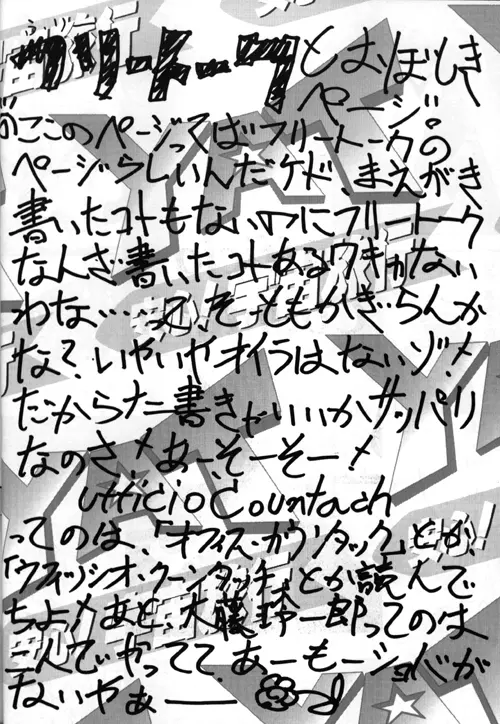 フリートークとおぼしき
ページ!
のここのページってばフリートークの
ページらしいんだケド、まえがき
書いたコトもないのにフリートーク
なんざ書いたコトあるワきゃない
わな…って、そーともかぎらんか
な?いやいやオイラはないゾ!
だからなに書きゃいいかサッパリ
なのさ!あ、そーそー!
Ufficio Countach
ってのは、「オフィス・カウンタック」とか
「ウフィッシオ・クーンタッチ」とか読んで
ちょ!あと、大藤玲一郎ってのは
二人でやってて、あーもーショバが
ないやぁ——